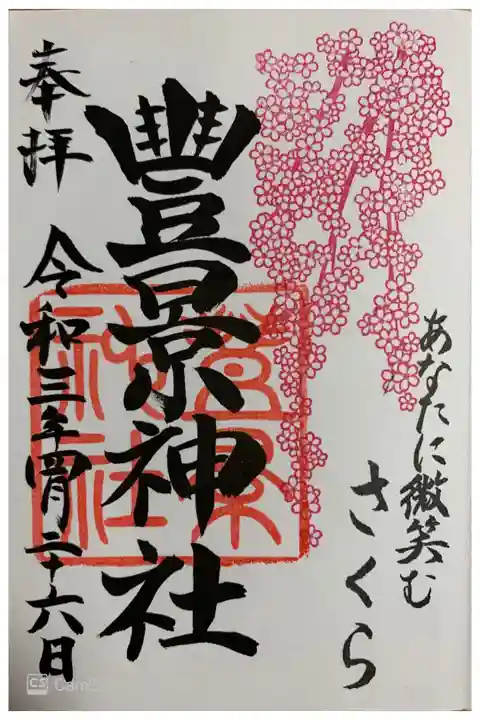 あなたに微笑む
さくら
豐景神社
奉拝 令和三年四月二十六日
豊景
神社
CS CamS